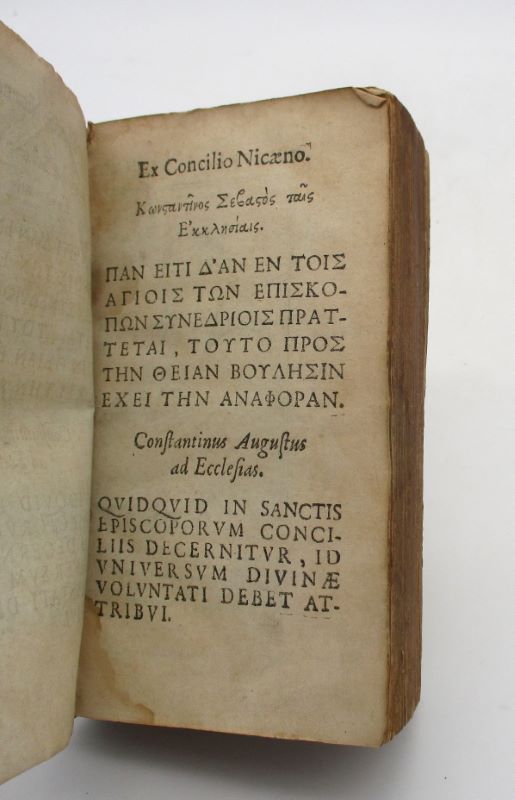 Ex Concilio Nicæno.
Κωνςαντῖνος Σεβαςὸς ταῖς
Εʼκκλησίαις.
ΠΑΝ ΕΙΤΙ Δ'ΑΝ ΕΝ ΤΟΙΣ
ΑΓΙΟΙΣ ΤΩΝ ΕΠΙΣΚΟ-
ΠΩΝ ΣΥΝΕΔΡΙΟΙΣ ΠΡΑΤ-
ΤΕΤΑΙ, ΤΟΥΤΟ ΠΡΟΣ
ΤΗΝ ΘΕΙΑΝ ΒΟΥΛΗΣΙΝ
ΕΧΕΙ ΤΗΝ ΑΝΑΦΟΡΑΝ.
Conſtantinus Auguſtus
ad Eccleſias.
QVIDQVID IN SANCTIS
EPISCOPORVM CONCI-
LIIS DECERNITVR, ID
VNIVERSVM DIVINÆ
VOLVNTATI DEBET AT-
TRIBVI.